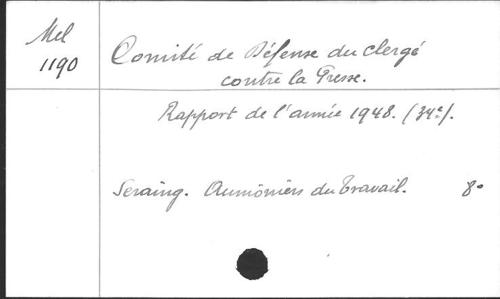 Mel
1190
Comité de Défense du Clergé
contre la Presse.
Rapport de l'année 1948. (34e).
Seraing. Aumôniers du Travail. 8°